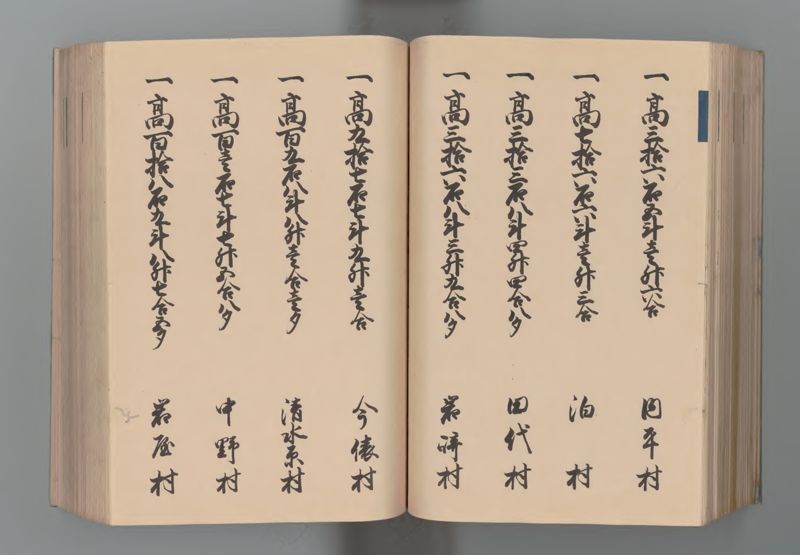 一高三拾六石五斗壱升六合 田平村
一高七拾六石六斗壱升三合 泊村
一高三拾三石八斗四升四合八夕 田代村
一高三拾六石八斗三升九合八夕 岩崎村
一高九拾七石七斗九升壱合 今俵村
一高百九石八斗八升壱合壱夕 清水原村
一高百壱石七斗七升五合八夕 中野村
一高百拾八石九斗八升七合五夕 岩屋村